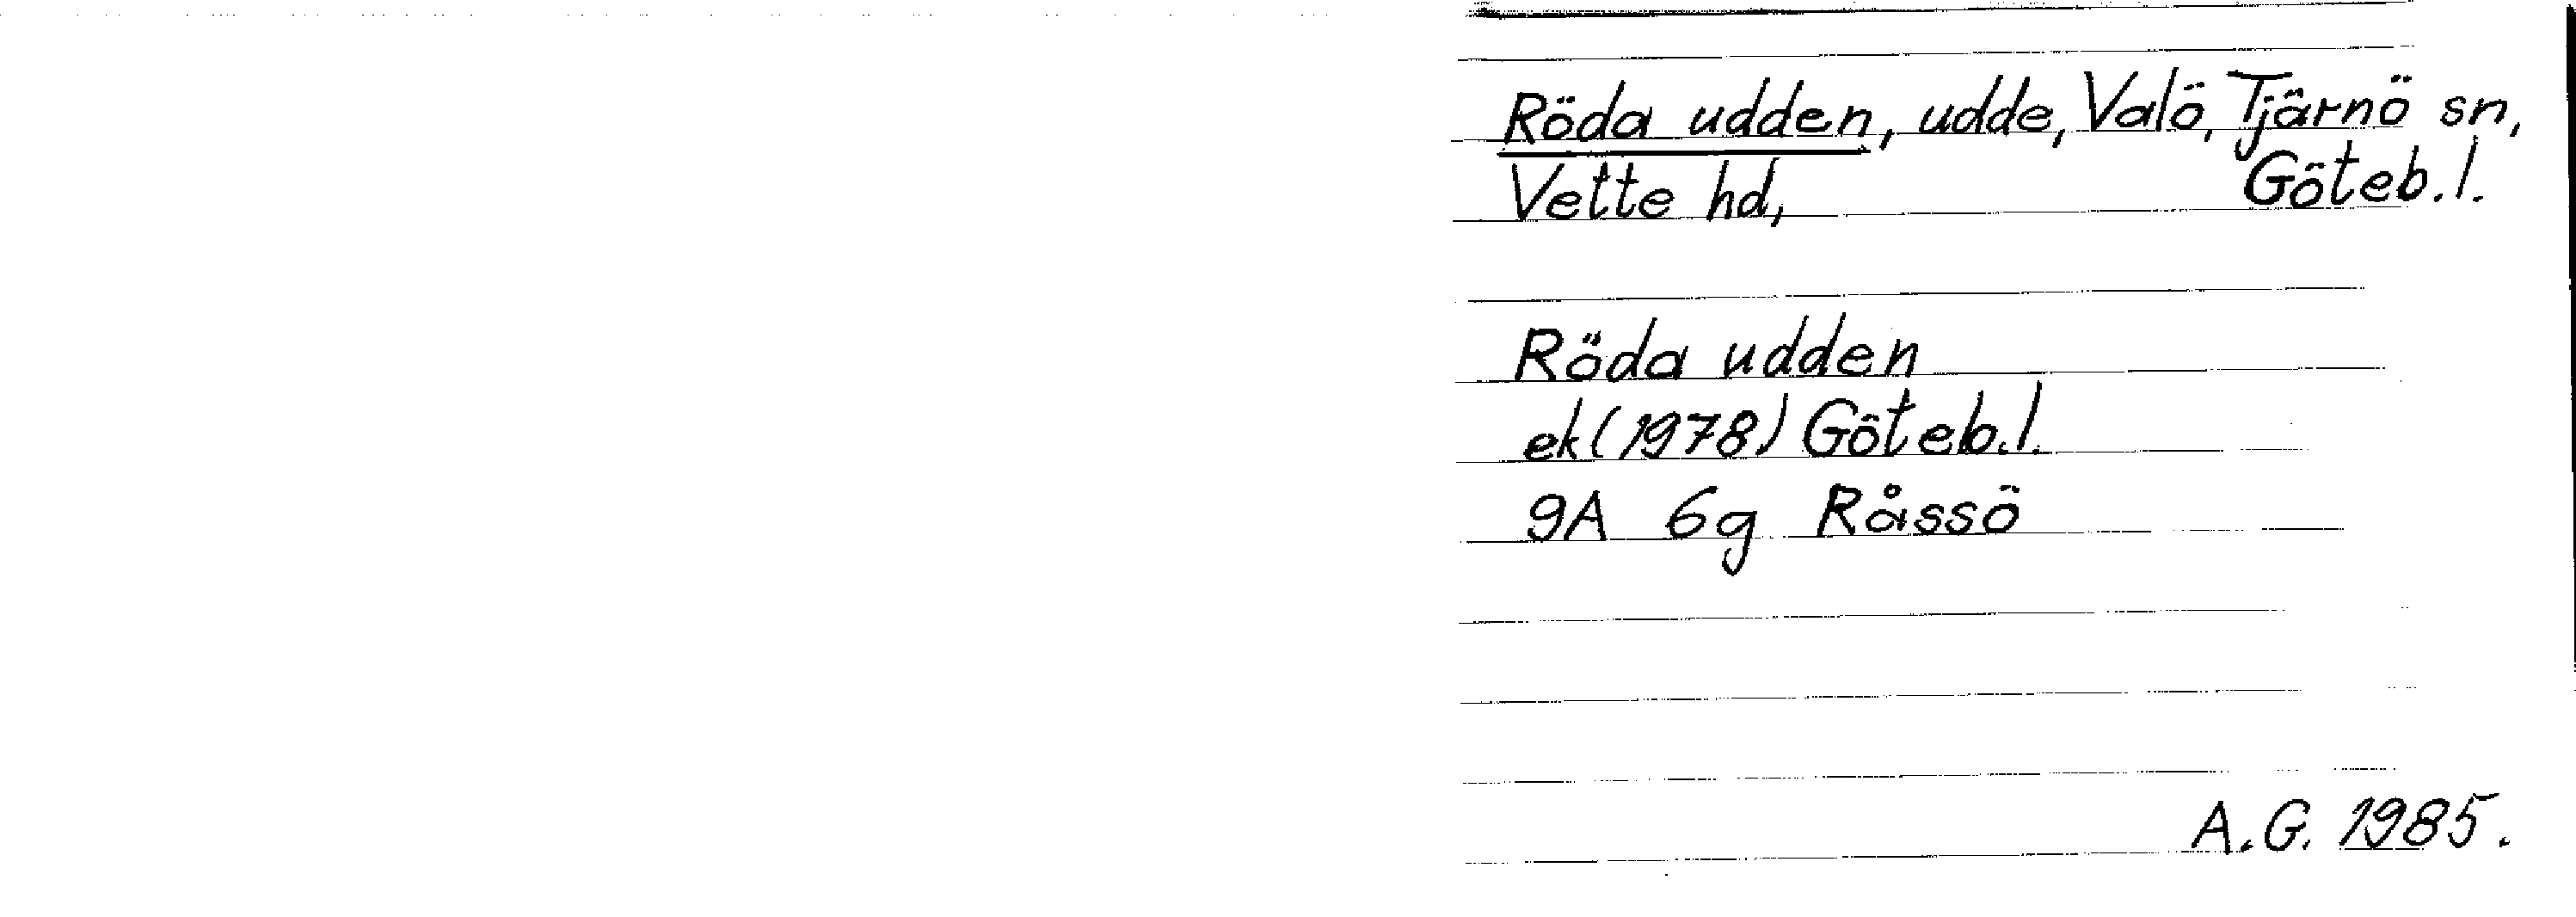 Röda udden, udde, Valö, Tjärnö sn,
Vette hd, Göteb.l.
Röda udden
ek (1978) Göteb.l.
9A 6g Råssö
A.G. 1985.